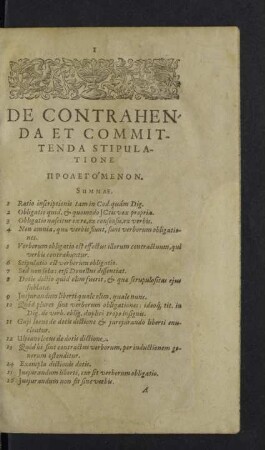 1
DE CONTRAHEN-
DA ET COMMIT-
TENDA STIPULA-
TIONE
ΠΡΟΛΕΓΌΜΕΝΟΝ.
SUMMAE.
1 Ratio inscriptionis tam in Cod. quàm Dig.
2 Obligatio quid, & quomodo JCtis vox propria.
3 Obligatio nascitur ex re, ex consensu, ex verbis.
4 Non omnia, quae verbis fiunt, sunt verborum obligatio-
nes.
5 Verborum obligatio est effectus illorum contractuum, qui
verbis contrahuntur.
6 Stipulatio est verborum obligatio.
7 Sed non solùm, etsi Donellus dissentiat.
8 Dotis dictio quid olim fuerit, & qua scrupulositas ejus
sublata.
9 Jurjurandum liberti quale olim, quale nunc.
10 Quòd plures sint verborum obligationes, idáq; tit. in
Dig. de verb. oblig. duplici tropo insignit.
11 Caji locus de dotis dictione & jurejurando liberti enu-
cleatur.
12 Ulpiani locus de dotis dictione.
13 Quid sit contractus verborum, per inductionem ge-
nerum ostenditur.
14 Exempla dictionis dotis.
15 Jusjurandum liberti, cur sit verborum obligatio.
16 Jusjurandum non fit sine verbis.
A